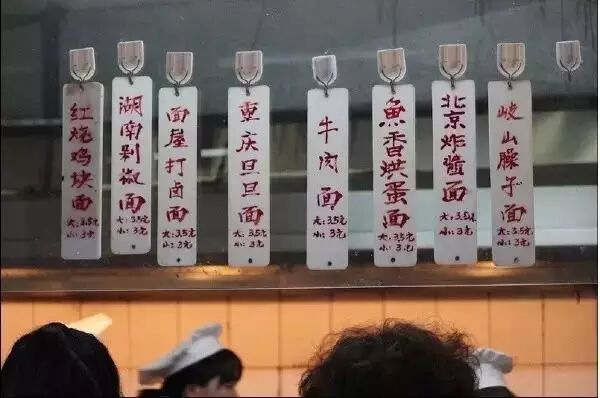 红烧鸡块面
大:3.5元
小:3元
湖南剁椒面
大:3.5元
小:3元
面屋打卤面
大:3.5元
小:3元
重庆旦旦面
大:3.5元
小:3元
牛肉面
大:3.5元
小:3元
魚香烘蛋面
大:3.5元
小:3元
北京炸醬面
大:3.5元
小:3元
岐山臊子面
大:3.5元
小:3元